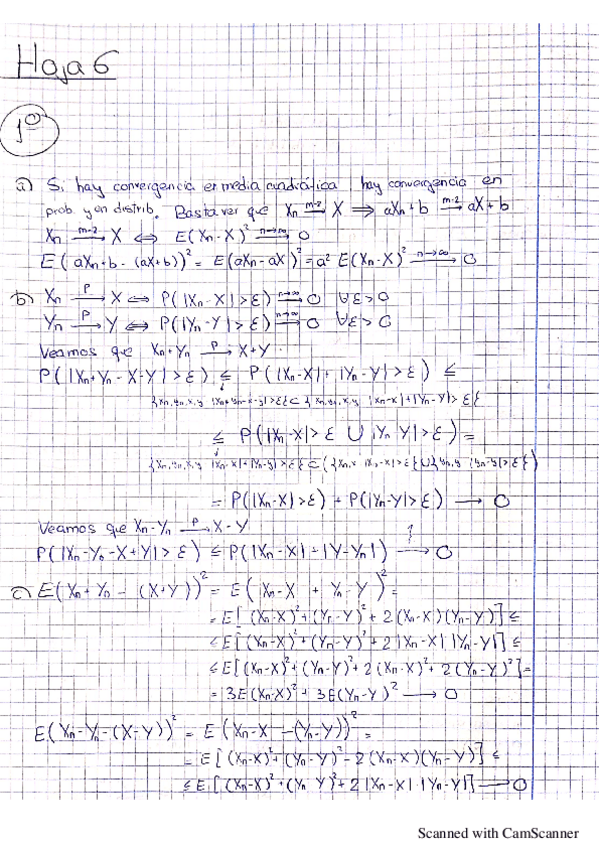 Hoja 6
1º
a) Si hay convergencia en media cuadrática, hay convergencia en
prob. y en distrib. Basta ver que Xn —m-2→ X ⟹ aXn + b —m-2→ aX + b
Xn —m-2→ X ⟺ E(Xn - X)² —n→∞→ 0
E(aXn + b - (aX + b))² = E(aXn - aX)² = a² E(Xn - X)² —n→∞→ 0
b) Xn —P→ X ⟺ P(|Xn - X| > ε) —n→∞→ 0 ∀ε > 0
Yn —P→ Y ⟺ P(|Yn - Y| > ε) —n→∞→ 0 ∀ε > 0
Veamos que Xn + Yn —P→ X + Y
P(|Xn + Yn - X - Y| > ε) ≤ P(|Xn - X| + |Yn - Y| > ε) ≤
{xn, yn, x, y |xn + yn - x - y| > ε} ⊂ {xn, yn, x, y |xn - x| + |yn - y| > ε}
≤ P(|Xn - X| > ε ∪ |Yn Y| > ε) =
{xn, yn, x, y |xn - x| + |yn - y| > ε} ⊂ ({xn, x |xn - x| > ε} ∪ {yn, y |yn - y| > ε})
= P(|Xn - X| > ε) + P(|Yn - Y| > ε) → 0
Veamos que Xn - Yn —P→ X - Y
P(|Xn - Yn - X + Y| > ε) ≤ P(|Xn - X| + |Y - Yn|) → 0
c) E(Xn + Yn - (X + Y))² = E(Xn - X + Yn - Y)² =
= E[(Xn - X)² + (Yn - Y)² + 2(Xn - X)(Yn - Y)] ≤
≤ E[(Xn - X)² + (Yn - Y)² + 2|Xn - X| |Yn - Y|] ≤
≤ E[(Xn - X)² + (Yn - Y)² + 2(Xn - X)² + 2(Yn - Y)²] =
= 3E(Xn - X)² + 3E(Yn - Y)² → 0
E(Xn - Yn - (X - Y))² = E(Xn - X - (Yn - Y))² =
= E[(Xn - X)² + (Yn - Y)² - 2(Xn - X)(Yn - Y)] ≤
≤ E[(Xn - X)² + (Yn Y)² + 2|Xn - X| · |Yn - Y|] → 0
Scanned with CamScanner